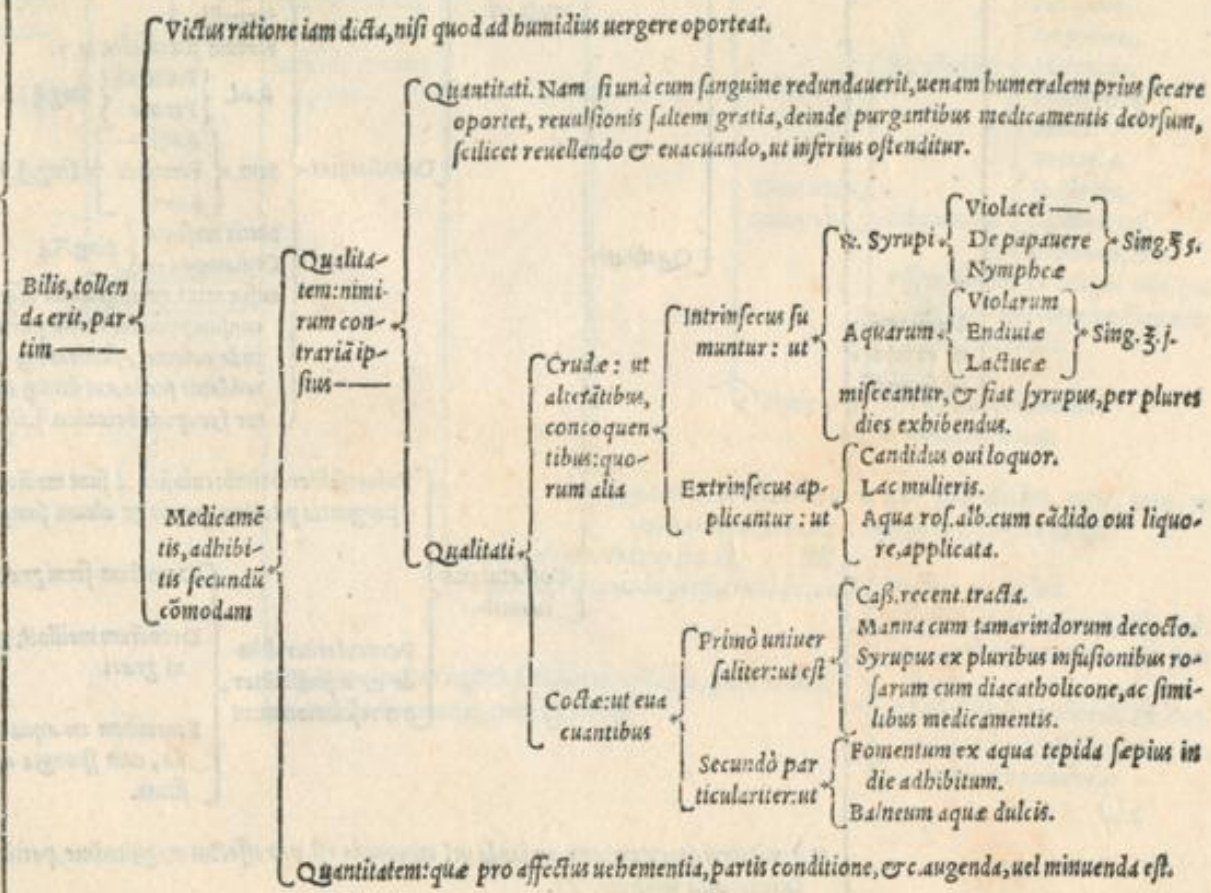 Victus ratione iam dicta, nisi quod ad humidius uergere oporteat.
Quantitati. Nam si unà cum sanguine redundauerit, uenam humeralem prius secare
oportet, reuulsionis saltem gratia, deinde purgantibus medicamentis deorsum,
scilicet reuellendo & euacuando, ut inferius ostenditur.
Bilis, tollen
da erit, par-
tim
Qualita-
tem: nimi-
rum con-
trariã ip-
sius
Medicamẽ
tis, adhibi-
tis secundũ
cõmodam
Qualitati
Crudæ: ut
alterãtibus,
concoquen
tibus: quo-
rum alia
Intrinsecus su
muntur: ut
℞. Syrupi
Violacei
De papauere
Nympheæ
Sing. ℥ s.
Aquarum
Violarum
Endiuiæ
Lactucæ
Sing. ℥. j.
misceantur, & fiat syrupus, per plures
dies exhibendus.
Extrinsecus ap-
plicantur: ut
Candidus oui loquor.
Lac mulieris.
Aqua ros. alb. cum cãdido oui liquo-
re, applicata.
Coctæ: ut eua
cuantibus
Primò uniuer
saliter: ut est
Caß. recent. tracta.
Manna cum tamarindorum decocto.
Syrupus ex pluribus infusionibus ro-
sarum cum diacatholicone, ac simi-
libus medicamentis.
Secundò par
ticulariter: ut
Fomentum ex aqua tepida sæpius in
die adhibitum.
Balneum aquæ dulcis.
Quantitatem: quæ pro affectus uehementia, partis conditione, &c. augenda, uel minuenda est.